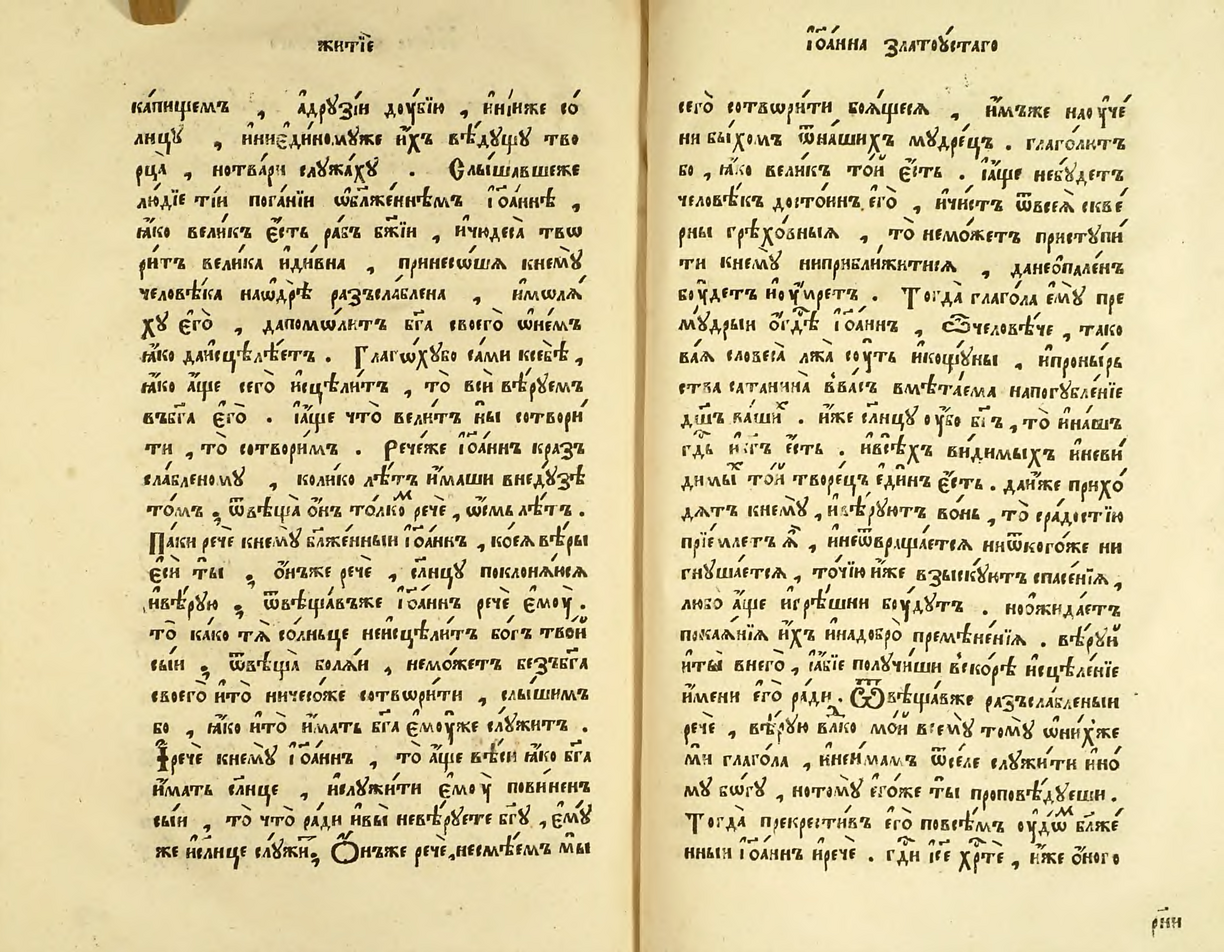 житїе
ка́пищемъ , а҆друзі́и до́убїю , и҆ні́иже со́
лнцу , и҆ниє҆ди́ному́же и҆́хъ вѣ́дꙋщꙋ тво
рца̀ , нотва́ри слꙋжа́хꙋ . Слы́шавшеже
лю́дїе ті́и поганїи ѡ҆блаже́ннѣмъ і҆ѡа́ннѣ ,
ꙗ҆́ко вели́къ є҆́сть ра́бъ бж҃їи , и҆чюдеса̀ твѡ
ри́тъ вели́ка и҆ди́вна , принесѡ́шѧ кнемꙋ̀
человѣ́ка наѡ҆дрѣ̀ разъсла́блена , и҆мѡлѧ́
хꙋ є҆гѡ̀ , дапомѡ́литъ бг҃а своегѡ̀ ѡ҆не́мъ
ꙗ҆́ко даи҆сцѣлѣ́етъ . Глаго́хꙋбо са́ми ксебѣ̀ ,
ꙗ҆́ко а҆́ще сего̀ и҆сцѣли́тъ , то̀ всѝ вѣ́рꙋемъ
въбг҃а є҆го̀ . і҆а҆́ще что̀ вели́тъ ны̀ сотвори́
ти , то̀ сотвори́мъ . Рече́же і҆ѡа́ннъ кразъ
сла́бленомꙋ , коли́ко лѣ́тъ и҆́маши внедꙋ́зѣ
то́мъ ; ѿвѣща̀ ѻ҆́нъ то́лкоⷨ речѐ , ѻ҆́смь лѣ́тъ .
Па́ки речѐ кнемꙋ̀ бл҃же́нныи і҆ѡа́ннъ , ко́еѧ вѣ́ры
є҆сѝ ты̀ ; ѻ҆́нъже речѐ , сл҃нцꙋ поклонѧ́юсѧ
и҆вѣ́рꙋю ; ѿвѣща́въже і҆ѡа́ннъ речѐ є҆мо́у .
то̀ ка́ко тѧ̀ со́лньце неи҆сцѣли́тъ бо́гъ тво́й
сы́и ; ѿвѣща̀ болѧ́и , немо́жетъ безъбг҃а
своего̀ и҆то̀ ничесо́же сотвѡри́ти , слы́шимъ
бо , ꙗ҆́ко и҆то̀ и҆́мать бг҃а є҆мо́уже слꙋ́житъ .
І҆речѐ кнемꙋ̀ і҆ѡа́ннъ , то̀ а҆́ще вѣ́си ꙗ҆́ко бг҃а
и҆́мать сл҃нце , и҆слꙋжи́ти є҆мо́у пови́ненъ
сы́и , то̀ что̀ ра́ди и҆вы̀ невѣ́рꙋете бг҃ꙋ , є҆мꙋ́
же и҆сл҃нце слꙋ́житъ; Ѻ҆́нъже речѐ,несмѣ́емъ мы̀
і҆ѡа́нна златоꙋ́стаго
сего̀ сотвѡри́ти боѧ́щесѧ , и҆́мъже нао́уче́
ни бы́хомъ ѿна́шихъ мꙋдре́цъ . глаго́литъ
бо , ꙗ҆́ко вели́къ то́й є҆́сть . і҆а҆́ще небꙋ́детъ
человѣ́къ досто́инъ є҆го̀ , и҆чи́стъ ѿвсеѧ̀ скве́
рны грѣхо́вныѧ , то̀ немо́жетъ пристꙋпи́
ти кнемꙋ̀ ниприбли́житисѧ , данеѻ҆пале́нъ
бо́удетъ ио҆у́мретъ . Тогда̀ глаго́ла є҆мꙋ̀ пре
мꙋ́дрыи о́гдѣ̀ і҆ѡа́ннъ , Ѽчеловѣ́че , та́ко
ва́ѧ словеса̀ лжа̀ со́уть и҆кощꙋ́ны , и҆проны́рь
ства сатанина̀ ввас̀ъ вмѣта́ема напогꙋбле́нїе
дш҃ъ ва́шиⷯ . и҆́же сл҃нцꙋ о҆у́бо бг҃ъ , то̀ и҆на́шъ
гд҃ь и҆бг҃ъ є҆́сть . и҆всѣ́хъ ви́димыхъ и҆неви́
димыⷯ то́й творе́цъ є҆ди́нъ є҆́сть . даи҆́же прихо́
дѧтъ кнемꙋ̀ , и҆вѣ́рꙋютъ во́нь , то̀ сра́достїю
прїе́млетъ ѧ҆̀ , и҆неѿвраща́етсѧ ниѿкого́же ни
гнꙋша́етсѧ , то́чїю и҆́же взы́скꙋютъ спасе́нїѧ ,
любо̀ а҆́ще и҆грѣ́шни бо́удꙋтъ . ноѡ҆жида́етъ
покаѧ́нїѧ и҆́хъ и҆надобро̀ премѣне́нїѧ . вѣ́рꙋй
и҆ты̀ внего̀ , і҆а҆́бїе полꙋ́чиши вско́рѣ и҆сцѣле́нїе
и҆́мени є҆го̀ ра́ди . Ѿвѣща́вже разъсла́бленыи
речѐ , вѣ́рꙋю влⷣко мо́й всемꙋ̀ томꙋ̀ ѡ҆ни́хже
ми́ глаго́ла , и҆неи҆́мамъ ѿсе́ле слꙋжи́ти и҆но
мꙋ̀ бѡ́гꙋ , нотомꙋ̀ є҆го́же ты̀ проповѣ́дꙋеши .
Тогда̀ прекрести́въ є҆го̀ повсѣ́мъ о҆у́дѡⷨ бл҃же́
нныи і҆ѡа́ннъ и҆речѐ . гдⷭ҇и і҆с҃е хрⷭ҇тѐ , и҆́же ѻ҆́ного
рни